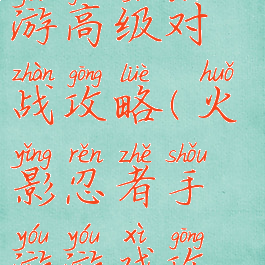 游高级对
zhàn gōng lüè huǒ
战攻略(火
yǐng rěn zhě shǒu
影忍者手
yóu yóu xì gōng
游游戏攻